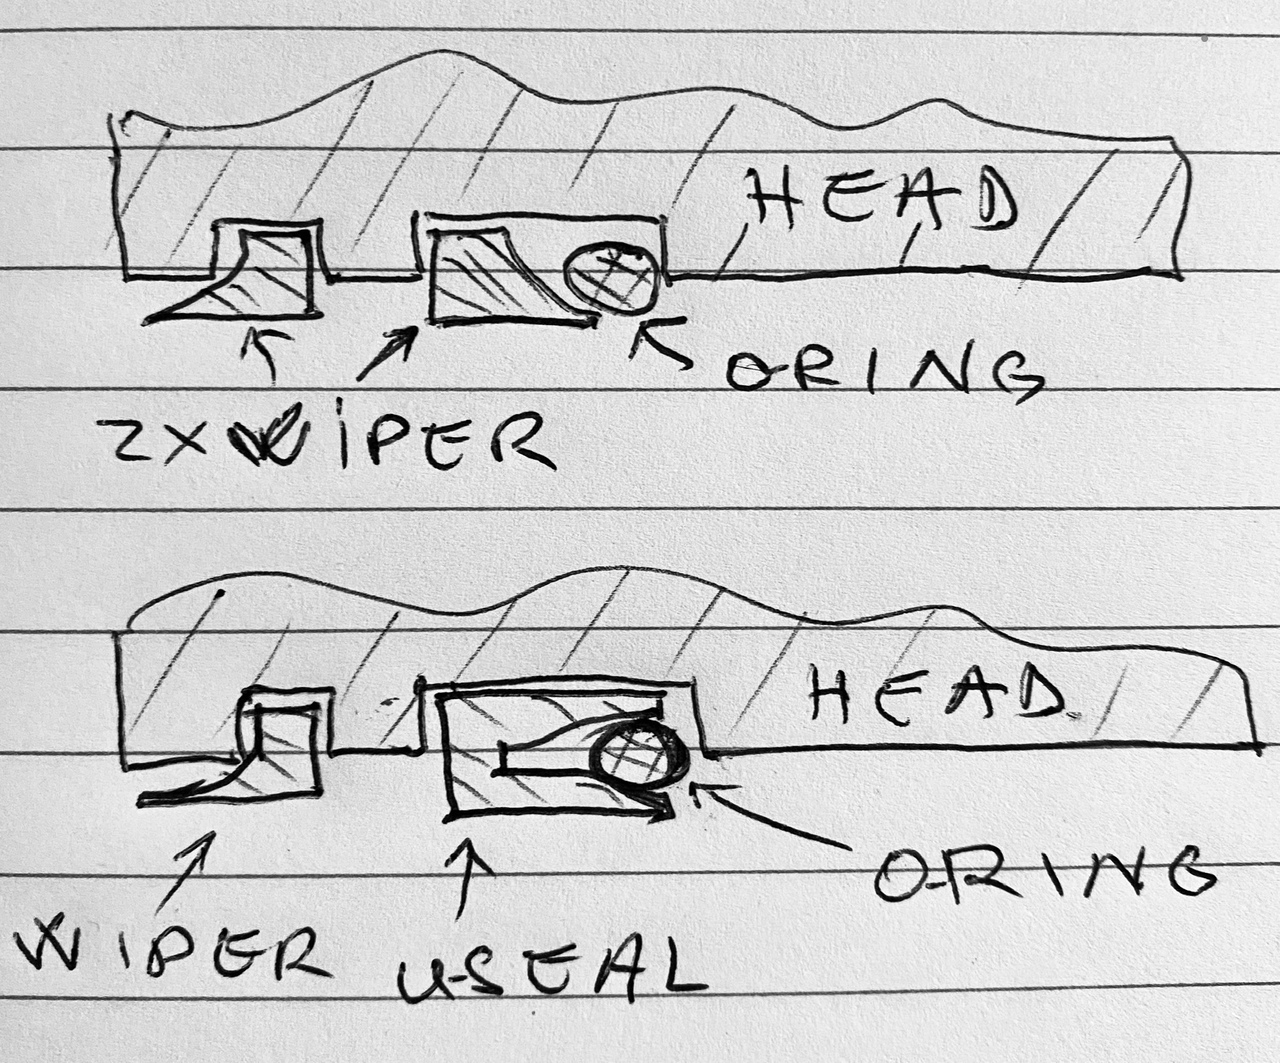 HEAD
ORING
2X WIPER
HEAD
ORING
WIPER U-SEAL